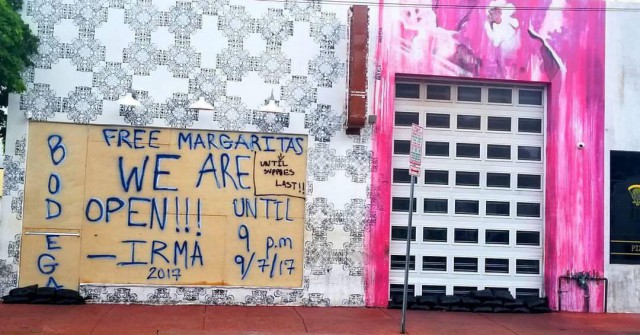 BODEGA
FREE MARGARITAS
WE ARE
UNTIL
SUPPLIES
LAST!!
OPEN!!!
UNTIL
9 p.m
9/7/17
—IRMA
2017